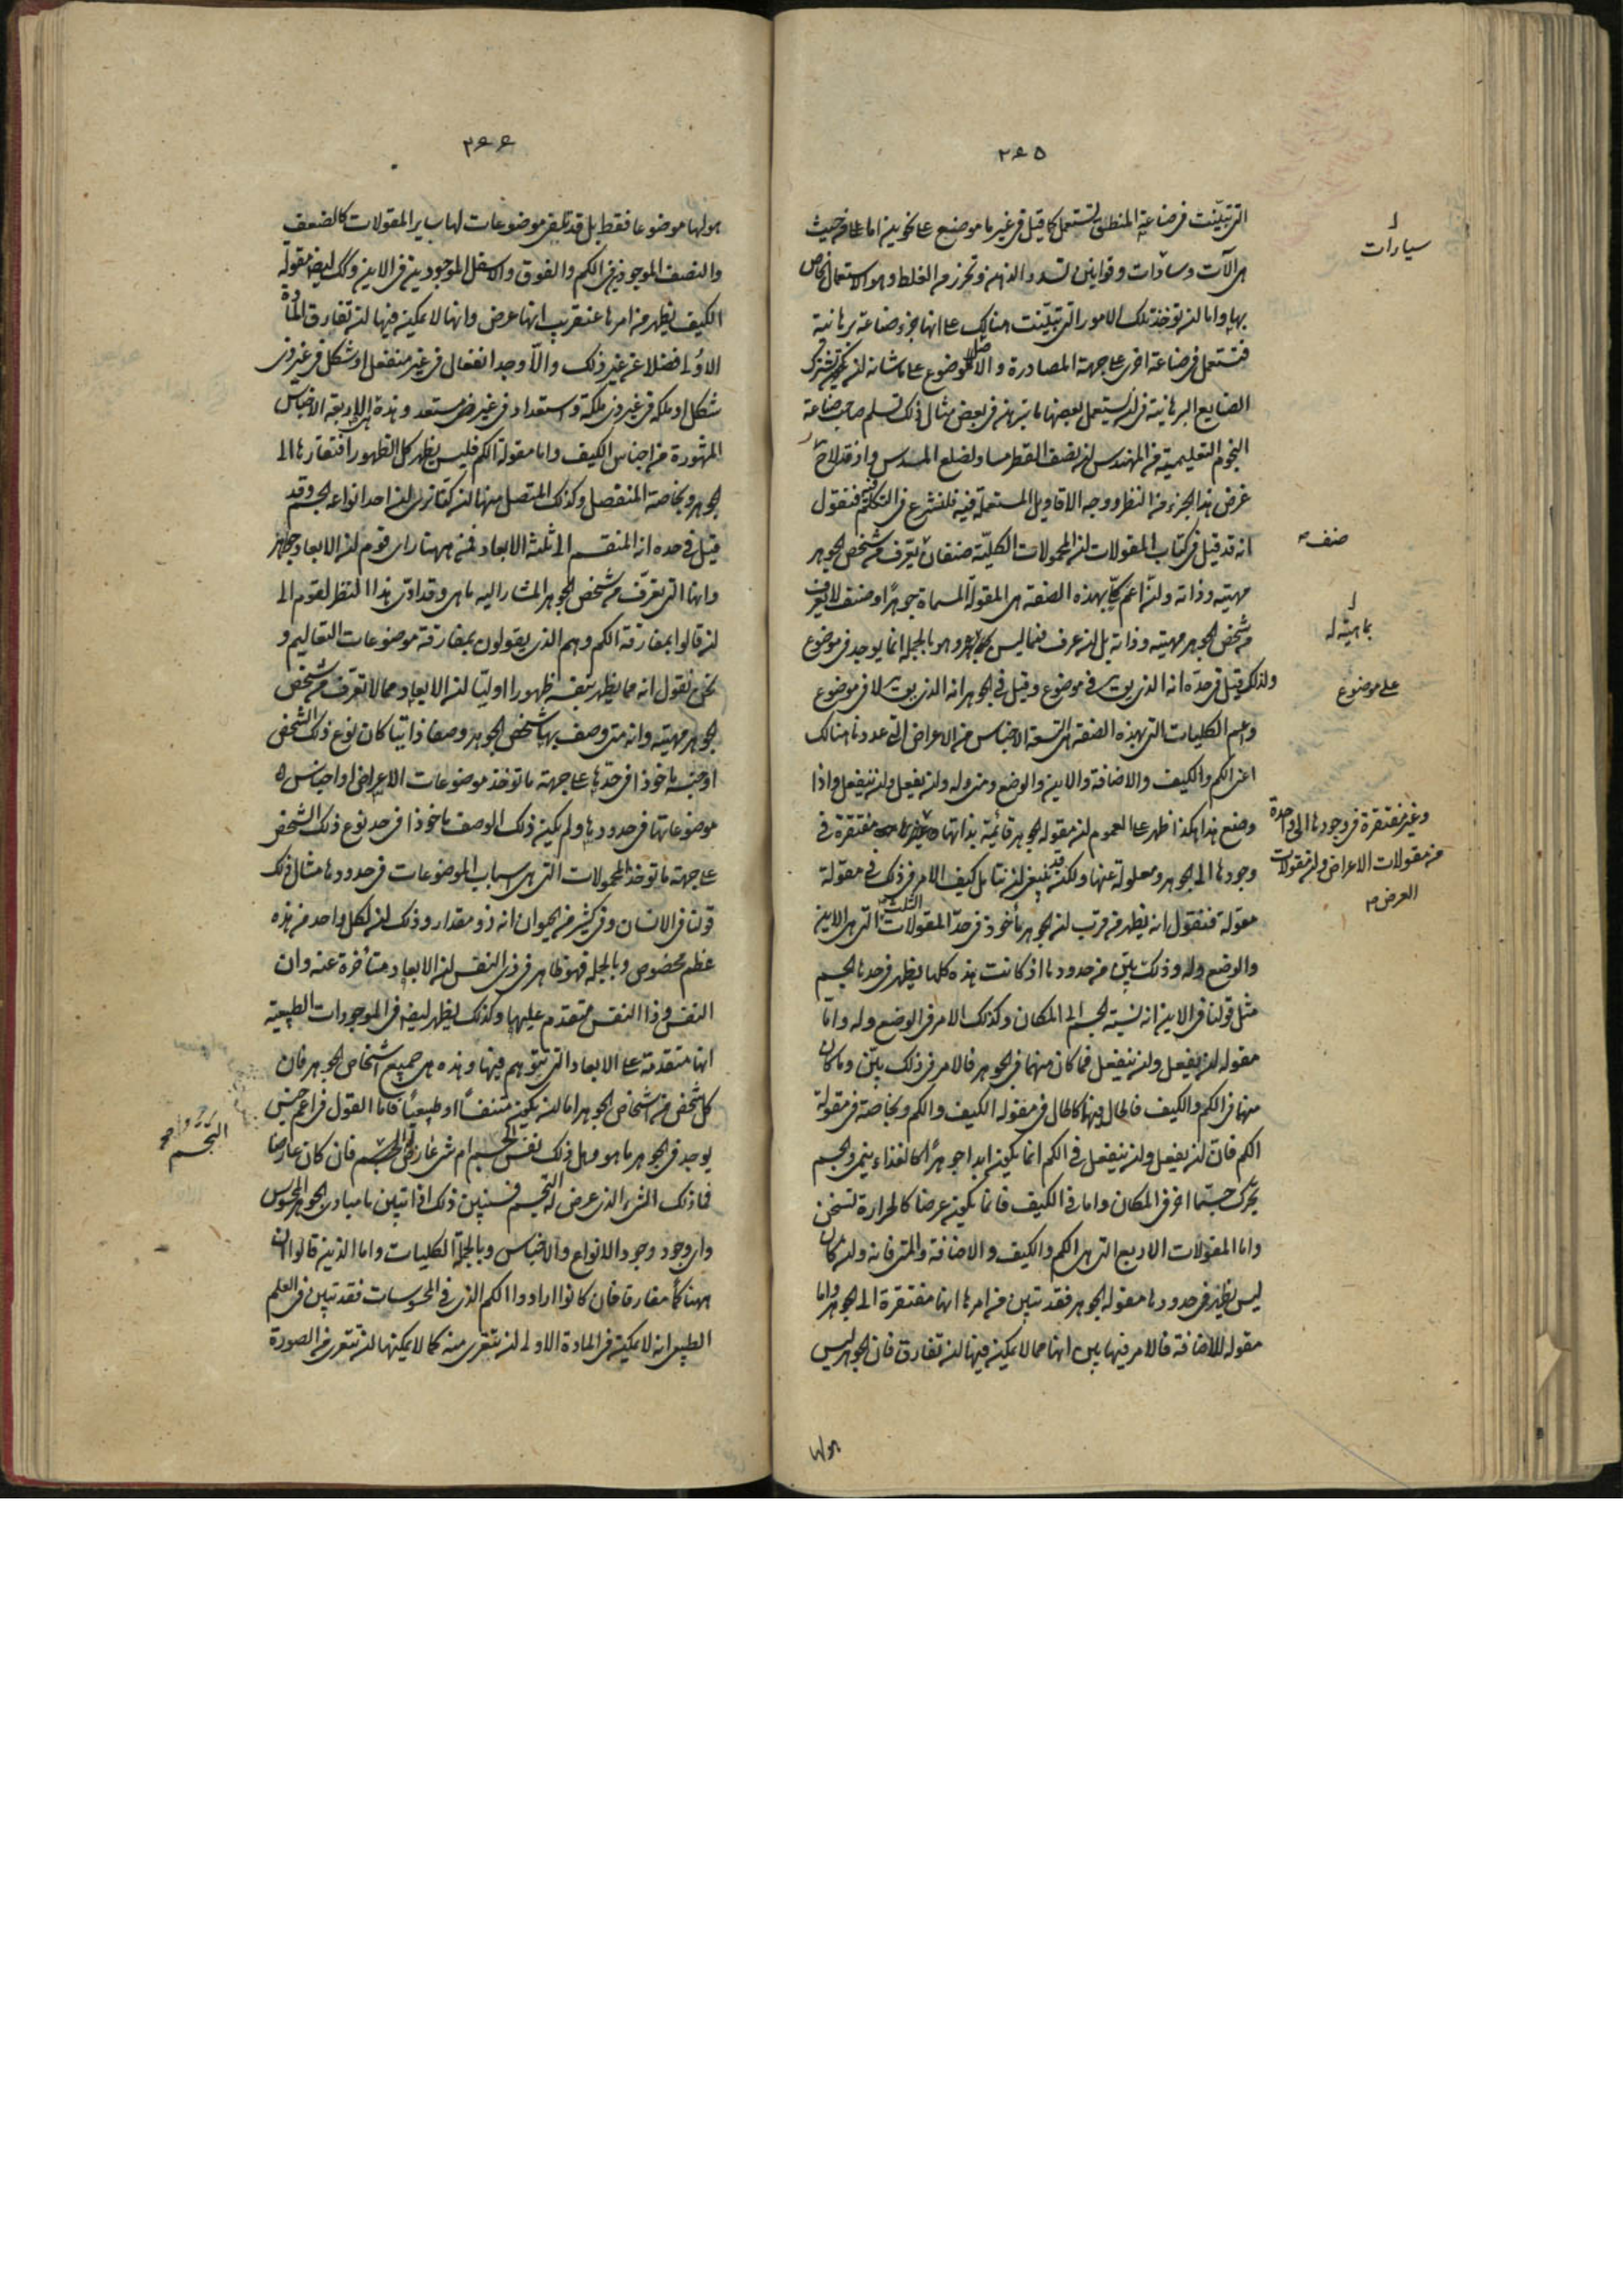 ٢٦٥
التي تبيّنت في صناعة المنطق تستعمل كما قيل في غير ما موضع على نحوين اما على من حيث
هي الآت وسبارات وقوانين تسدد الذهن وتحرز من الغلط وهو الاستعمال الخاص
بها واما ان توخذ تلك الامور التي تبيّنت هنالك على انها جزء صناعة برهانية
فتستعمل في صناعة اخرى على جهة المصادرة والاصل الموضوع على ما شانه ان تكون تشترك
الصنايع البرهانية في ان يستعمل بعضها ما تبرهن في بعض مثال ذلك تسلم صاحب صناعة
النجوم التعليمية من المهندس ان نصف القطر مساو لضلع المسدس واذ قد لاح
غرض هذا الجزء من النظر ووجه الاقاويل المستعملة فيه فلنشرع في التكلم فيه فنقول
انه قد قيل في كتاب المقولات ان المحمولات الكليّة صنفان يعرف من شخص الجوهر
مهيته وذاته وان اعم كلى بهذه الصفة هي المقولة المسماة جوهرا وصنف لا يعرف
من شخص الجوهر مهيته وذاته بل ان عرف فما ليس بجوهر وهو بالجملة انما يوجد في موضوع
ولذلك قيل في حدّه انه الذي يوجد في موضوع وقيل في الجوهر انه الذي يوجد لا في موضوع
واعم الكليات التي بهذه الصفة هي التسعة الاجناس من الاعراض التي عددنا هنالك
اعنى الكم والكيف والاضافة والاين والوضع ومتى وله وان يفعل وان ينفعل واذا
وضع هذا هكذا ظهر على العموم ان مقولة الجوهر قائمة بذاتها مفتقرة في
وجودها الى الجوهر ومعلولة عنها ولكنه قد ينبغى ان نتامل كيف الامر في ذلك في مقولة
مقولة فنقول انه يظهر من قرب ان الجوهر مأخوذ في حدّ المقولات الثلث التي هي الاين
والوضع وله وذلك بيّن من حدودها اذ كانت هذه كلها يظهر في حدها الجسم
مثل قولنا في الاين انه نسبة الجسم الى المكان وكذلك الامر في الوضع وله وامّا
مقولة ان يفعل وان ينفعل فما كان منهما في الجوهر فالامر في ذلك بيّن وما كان
منها في الكم والكيف فالحال فيها كالحال في مقولة الكيف والكم وبخاصة في مقولة
الكم فان ان يفعل وان ينفعل في الكم انما يكون ابدا جوهرا كالغذاء ينمي والجسم
يحرك جسما اخر في المكان واما في الكيف فانما يكون عرضا كالحرارة تسخن
واما المقولات الاربع التي هي الكم والكيف والاضافة والمتى فانه وان كان
ليس يظهر في حدودها مقولة الجوهر فقد تبين من امرها انها مفتقرة الى الجوهر واما
مقولة الاضافة فالامر فيها بين انها مما لا يمكن فيها ان تفارق فان الجوهر ليس
هولها
سبارات
صنف
بماهية له
على موضوع
وغير مفتقرة في وجودها الى واحدة
من مقولات الاعراض وان مقولات
العرض
٢٦٦
هولها موضوعا فقط بل قد تلفى موضوعات لها ساير المقولات كالضعف
والنصف الموجودين في الكم والفوق والاسفل الموجودين في الاين وكك ايضا مقولة
الكيف يظهر من امرها عن قريب انها عرض وانها لا يمكن فيها ان تفارق المادة
الاولى فضلا عن غير ذلك والّا وجد انفعال في غير منفعل او شكل في غير ذى
شكل او ملكة في غير ذى ملكة واستعداد في غير مستعد وهذه هي الاربعة الاجناس
المشهورة من اجناس الكيف واما مقولة الكم فليس يظهر كل الظهور افتقارها الى
الجوهر وبخاصة المنفصل وكذلك المتصل منها ان كنا نرى ان احد انواعه الجسم وقد
قيل في حده انه المنقسم الى ثلثة الابعاد فمن ههنا راى قوم ان الابعاد جواهر
وانها التي تعرّف من شخص الجوهر المشار اليه ما هي وقد ادّى هذا النظر لقوم الى
ان قالوا بمفارقة الكم وهم الذين يقولون بمفارقة موضوعات التعاليم و
نحن نقول انه مما يظهر بنفسه ظهورا اوليا ان الابعاد مما لا تعرف من شخص
الجوهر مهيته وانه متى وصف بها شخص الجوهر وصفا ذاتيا كان نوع ذلك الشخص
او جنسه ماخوذا في حدّها على جهة ما توخذ موضوعات الاعراض او اجناس
موضوعاتها في حدودها ولم يكن ذلك الوصف ماخوذا في حد نوع ذلك الشخص
على جهة ما توخذ المحمولات التي هي اسباب الموضوعات في حدودها مثال ذلك
قولنا في الانسان وفي كثير من الحيوان انه ذو مقدار وذلك ان لكل واحد من هذه
عظم مخصوص وبالجملة فهو ظاهر في ذى النفس ان الابعاد متأخرة عنه وان
النفس وذا النفس متقدم عليها وكذلك يظهر ايضا في الموجودات الطبيعية
انها متقدمة على الابعاد التي تتوهم فيها وهذه هي جميع اشخاص الجوهر فان
كل شخص من اشخاص الجوهر اما ان يكون متنفسا او طبيعيا فاما القول في اعم جنس
يوجد في الجوهر ما هو وهل ذلك نفس الجسم ام شى عارض له الجسم فان كان عارضا
فما ذلك الشئ الذي عرض له التجسم فسنبين ذلك اذا تبين ما مبادى الجوهر المحسوس
واى وجود وجود الانواع والاجناس وبالجملة الكليات واما الذين قالوا ان
ههنا كما مفارقا فان كانوا ارادوا الكم الذي في المحسوسات فقد تبين في العلم
الطبيعى انه لا يمكن في المادة الاولى ان تتعرى منه كما لا يمكنها ان تتعرى من الصورة
التجسم